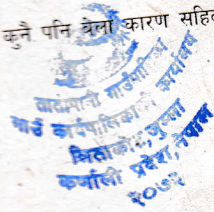 कुनै पनि बेला कारण सहित
तातोपानी गाउँपालिका
गाउँ कार्यपालिकाको कार्यालय
जुम्ला
कर्णाली प्रदेश, नेपाल
२०७३